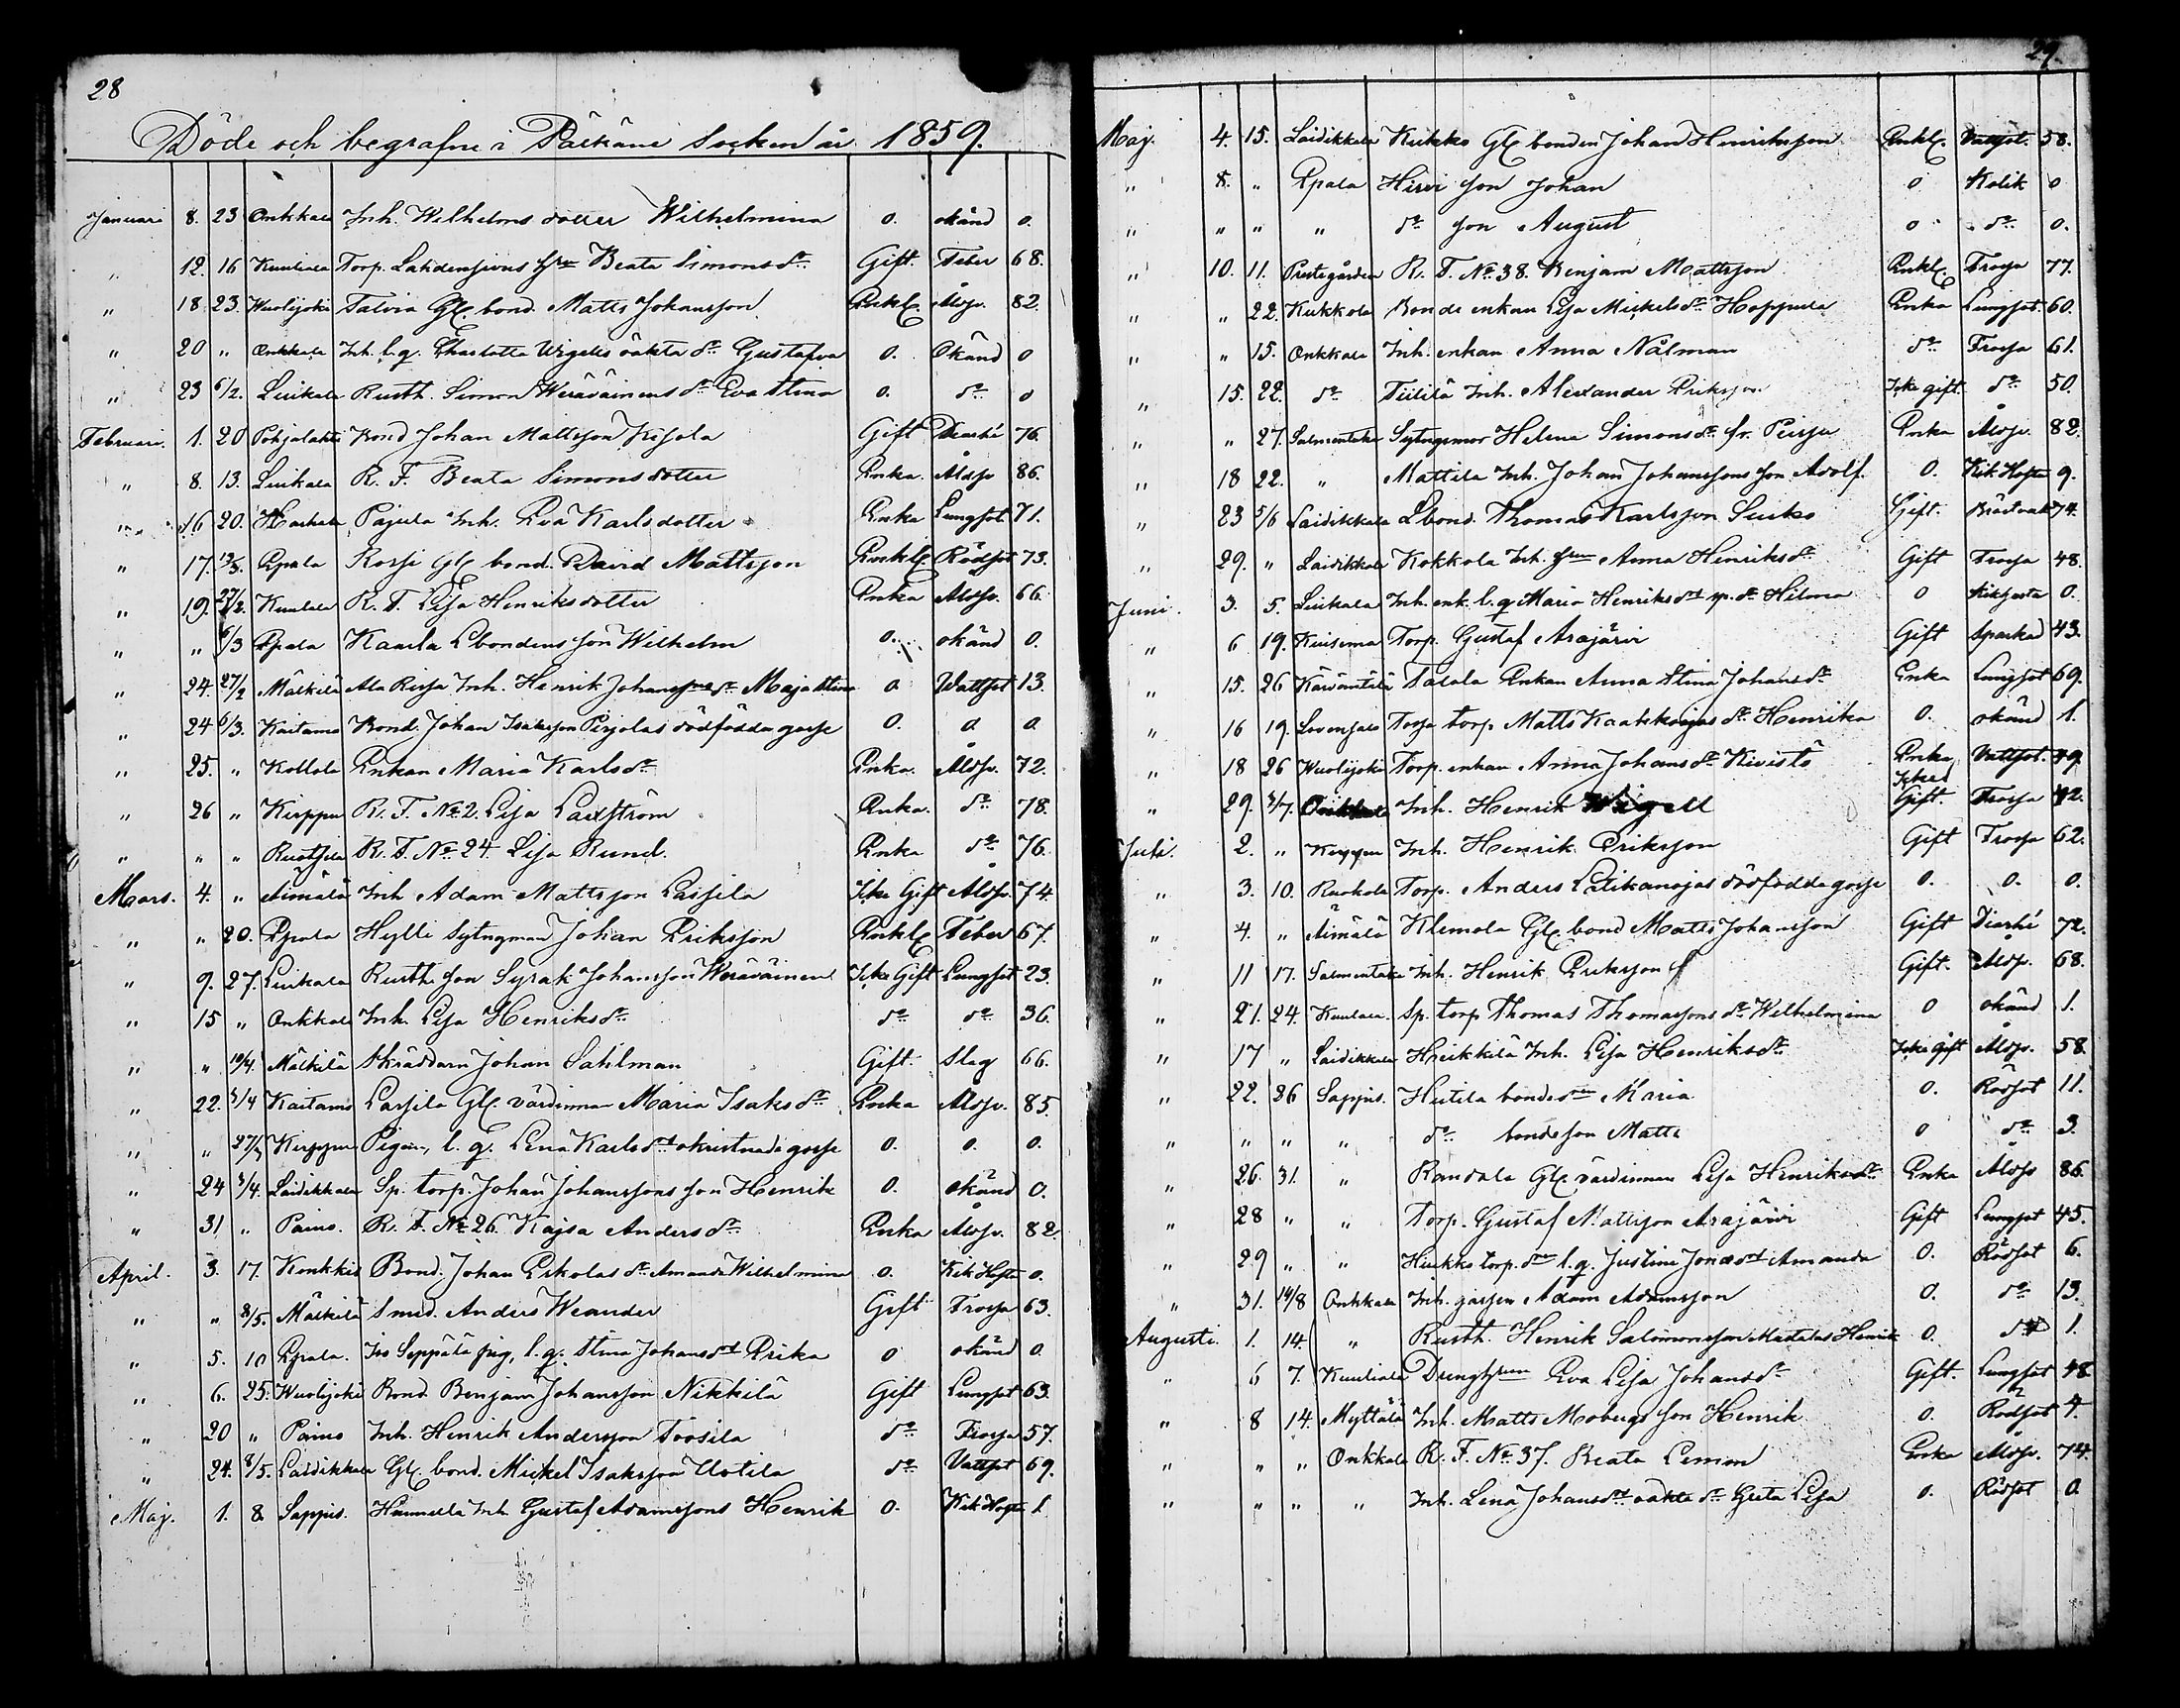 28
Döde och begrafne i Pälkäne Socken år 1859.
Januari 8. 23 Onkkala Inh. Wilhelms dotter Wilhelmina 0. okänd 0.
" 12. 16 Kuuliala Torp. Lahdensivus hru Beata Simonsdr Gift. Feber 68.
" 18 23. Wuolijoki Talvia Gl. bond. Matts Johansson Enkl. Åldr. 82.
" 20 " Onkkala Inh. l. q. Charlotta Wigells oäkta dr Gustafva 0. Okänd 0
" 23 6/2. Luikala Rusth. Simon Weräväinens dr Eva Stina 0. do 0
Februari. 1. 20 Pohjalahti Bond Johan Mattsson Gift Diarhé 76.
" 8. 13. Luikala R. F. Beata Simonsdotter Enka. Åldr 86.
" 16 20. Pajula Inh. Eva Karlsdotter Enka Lungsot. 71.
" 17. 13/3. Epala Rossi Gl. bond. David Mattsson Enkl. Rödsot 73.
" 19. 27/2. Kuuliala R. F. Lisa Henriksdotter Enka Åldr. 66.
" " 6/3 Epala Kaarla Lbondens son Wilhelm 0. okänd 0.
" 24. 27/2 Mälkilä Ala Inh. Henrik Johanssons dr Maja Stina 0 Wattsot 13.
" 24 6/3. Kaitamo Bond. Johan Isaksson Pirjolas dödfödda gosse 0. 0. 0.
" 25. " Kollola Enkan Maria Karlsdr Enka. Åldr. 72.
" 26 " Kirppu R. F. No 2. Lisa Laxström Enka. do 78.
" " " R. F. No 24. Lisa Rund. Enka do 76.
Mars. 4. " Äimälä Inh Adam Mattsson Lassila Icke Gift Åldr. 74.
" " 20. Epala Hylli Sytngman Johan Eriksson Enkl. Feber 67.
" 9. 27. Luikala Rusth. son Syrak Johansson Weräväinen Icke Gift Lungsot 23.
" 15 " Onkkala Inh. Lisa Henriksdr do do 36.
" " 10/4. Mälkilä Skräddarn Johan Sahlman Gift. Slag 66.
" 22. 3/4 Kaitamo Lassila Gl. värdinnan Maria Isaksdr Enka Åldr. 85.
" " 27/3 Kirppu Pigan, l. q. Lena Karlsdrs okristnade gosse 0. 0. 0.
" 24 3/4. Laidikkala Sp. torp. Johan Johanssons son Henrik 0. okänd 0.
" 31 " Paino. R. F. No 26. Kajsa Andersdr Enka Åldr. 82.
April. 3. 17. Kankkis Bond. Johan Eskolas dr Amanda Wilhelmina 0. Kik Hosta 0.
" " 8/5. Mälkilä Smed. Anders Weander Gift Frossa 63.
" 5. 10 Epala. Iso Seppälä pig, l. q. Stina Johansdrs Erika 0 okänd 0.
" 6. 25. Wuolijoki Bond Benjam Johansson Nikkilä Gift Lungsot 63.
" 20 " Paino Inh. Henrik Andersson Toosila do Frossa 57.
" 24. 8/5. Laidikkala Gl. bond. Mickel Isaksson Uotila do Vattsot 69.
Maj. 1. 8 Sappis. Hannula Inh Gustaf Adamssons Henrik 0. Kik Hosta 1.
29.
Maj. 4. 15. Laidikkala Kukko Gl. bonden Johan Henriksson Enkl. Vattsot. 58.
" 8. " Epala Hirvi son Johan 0 Kolik 0
" " " " do son August 0 do 0.
" 10. 11. Prestgården R. F. No 38. Benjam Mattsson Enkl. Frossa 77.
" " 22. Kukkola Bonde enkan Lisa Mickelsdr Hoppula Enka Lungsot. 60.
" " 15. Onkkala Inh. enkan Anna Nålman do Frossa 61.
" 15. 22. do Tiililä Inh. Alexander Eriksson Icke gift. do 50.
" " 27. Salmentaka Sytngsmor Helena Simonsdr fr. Enka Åldr. 82.
" 18 22. " Mattila Inh. Johan Johanssons son Adolf. 0. Kik Hosta 9.
" 23 5/6 Laidikkala Lbond. Thomas Karlsson Suiko Gift. 74.
" 29. " Laidikkala Kokkola Inh. hrun Anna Henriksdr Gift Frossa 48.
Juni. 3. 5. Luikala Inh. enk. l. q Maria Henriksdrs sp. dr Hilma 0 Kikhosta 0.
" 6 19. Kuisema Torp. Gustaf Arajärvi Gift Sparkad 43.
" 15. 26 Kärsämäki Talala Enkan Anna Stina Johansdr Enka Lungsot 69.
" 16 19. Lovensalo torp. Matts dr Henrika 0. okänd 1.
" 18 26 Wuolijoki Torp. enkan Anna Johansdr Kivistö Enka Vattsot. 49.
" 29. 3/7. Onkkala Inh. Henrik Wigell Icke Gift. Frossa 42.
Juli. 2. " Kirppu Inh. Henrik Eriksson Gift Frossa 62.
" 3. 10. Ruokola Torp. Anders Lätikanojas dödfödda gosse 0. 0. 0.
" 4. " Äimälä Klemola Gl. bond Matts Johansson Gift Diarhé 72.
" 11 17. Salmentaka Inh. Henrik Eriksson Gift. Åldr. 68.
" 21. 24. Kuuliala. Sp. torp Thomas Thomassons dr Wilhelmina 0 okänd 1.
" 17 " Laidikkala Heikkilä Inh. Lisa Henriksdr Icke Gift Åldr. 58.
" 22. 26 Sappis. Hutila bondedr Maria 0. Rödsot 11.
" " " " do bondeson Matts 0 do 3.
" 26. 31. " Randala Gl. värdinnan Lisa Henriksdr Enka Åldr 86.
" 28 " " Torp. Gustaf Mattsson Arajärvi Gift Lungsot 45.
" 29 " " Hukko torp. dr l. q. Justina Jonasdrs Amanda 0. Rödsot 6.
" 31. 14/8 Onkkala Inh. gossen Adam Adamsson 0. do 13.
Augusti. 1. 14. " Rusth. Henrik Salomonsson Mattilas Henrik 0. do 1.
" 6 7. Kuuliala Drenghrun Eva Lisa Johansdr Gift. Lungsot 48
" 8 14. Myttälä Inh. Matts Mobergs son Henrik 0. Rödsot 4.
" " " Onkkala R. F. No 37. Beata Lemon Enka Åldr. 74.
" " " " Inh. Lena Johansdrs oäkta dr Greta Lisa 0. Rödsot 0.